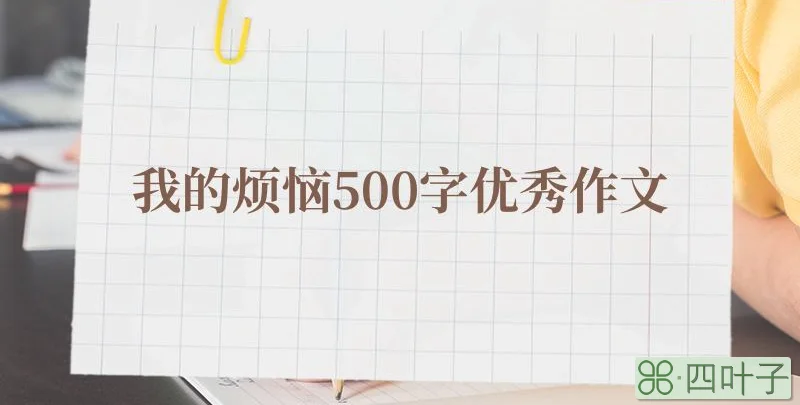 我的烦恼500字优秀作文
四叶子